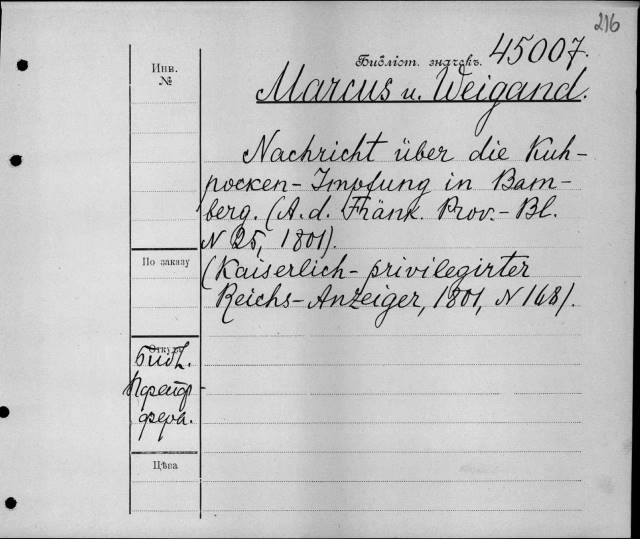 216
Библіот. значекъ. 45007.
Инв.
№
Marcus u. Weigand.
Nachricht über die Kuh-
pocken-Impfung in Bam-
berg. (A. d. Fränk. Prov.-Bl.
N 25, 1801).
По заказу
(Kaiserlich-privilegirter
Reichs-Anzeiger, 1801, N 168).
Откуда
Библ.
Пфейф-
фера.
Цѣна